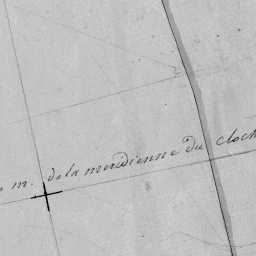 m. de la meridienne du cloch